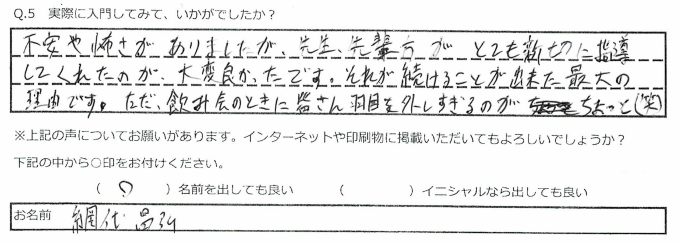 Q.5 実際に入門してみて、いかがでしたか？
不安や怖さがありましたが、先生、先輩方がとても親切に指導
してくれたのが、大変良かったです。それが続けることが出来た最大の
理由です。ただ、飲み会のときに皆さん羽目を外しすぎるのがちょっと(笑)
※上記の声についてお願いがあります。インターネットや印刷物に掲載いただいてもよろしいでしょうか？
下記の中から○印をお付けください。
（ ○ ）名前を出しても良い （ ）イニシャルなら出しても良い
お名前 網代 昌弘